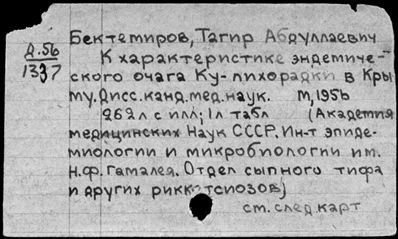 Д.56
1337
Бектемиров, Тагир Абдуллаевич
К характеристике эндемиче-
ского очага Ку-лихорадки в Кры
му. Дисс. канд. мед. наук. М, 1956
262л с илл; 1л табл (Академия
медицинских Наук СССР. Ин-т эпиде-
миологии и микробиологии им.
Н.Ф. Гамалея. Отдел сыпного тифа
и других риккетсиозов)
см. след. карт